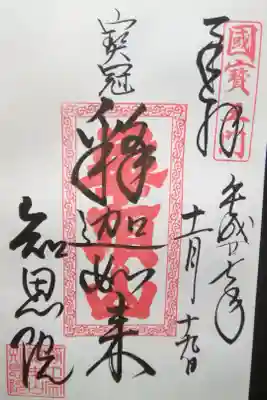 國寶三門
奉拝
平成廿七年
十一月十九日
寶冠
釋迦如来
知恩院